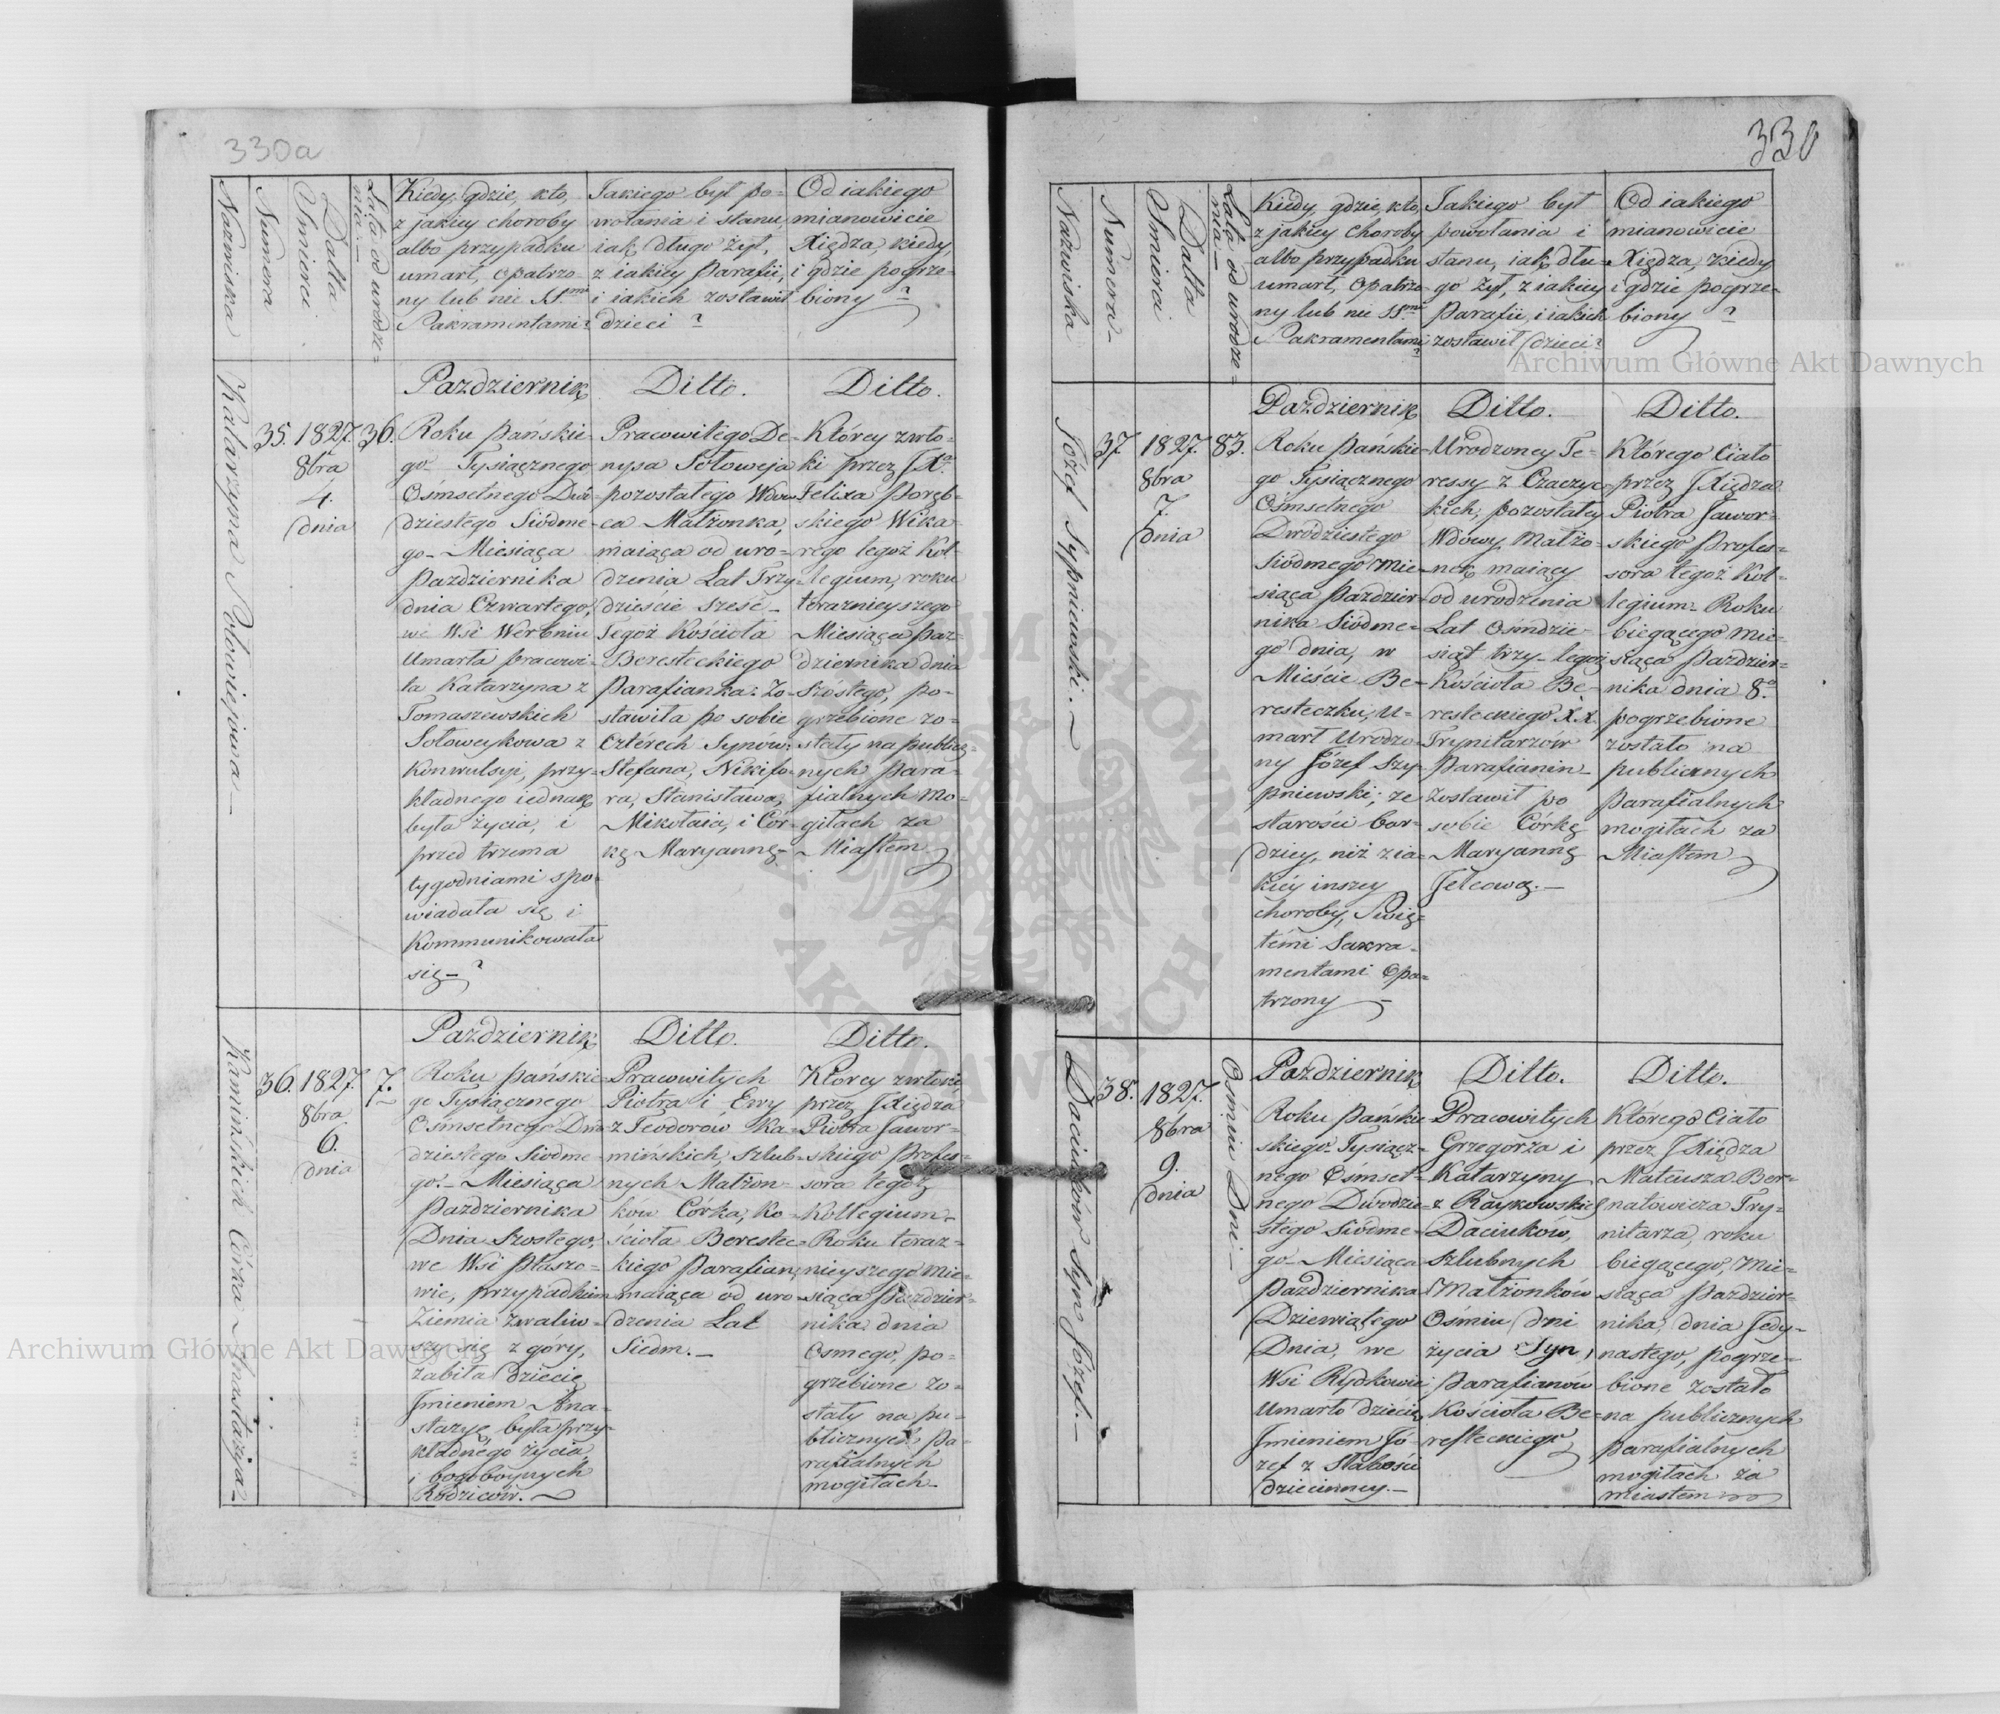 330a
Nazwiska
Numera
Datta
Smierci
Lata od urodze=
nia.—
Kiedy, gdzie, kto,
z jakiey choroby
albo przypadku
umarł, opatrzo=
ny lub nie SS.mi
Sakramentami?
Jakiego był po=
wołania i stanu,
iak długo żył,
z iakiey Parafii,
i iakich zostawił
dzieci ?
Od iakiego
mianowicie
Xiędza, kiedy,
i gdzie pogrze=
biony ?
Katarzyna Sołowiejowa—
35.
1827.
8bra
4.
dnia
36.
Pazdziernik
Roku Pańskie=
go Tysiącznego
Ośmsetnego Dwó=
dziestego Siódme=
go— Miesiąca
Pazdziernika
dnia Czwartego,
we Wsi Werbniu
Umarła pracowi=
ta Katarzyna z
Tomaszewskich
Sołoweykowa z
Konwulsyi, przy=
kładnego iednak
była życia, i
przed trzema
tygodniami spo=
wiadała się i
Kommunikowała
się—
Ditto.
Pracowitego De=
nysa Sołoweja
pozostałego Wdow=
ca Małżonka,
maiąca od uro=
dzenia Lat Trzy=
dzieście sześć—
Tegoż Kościoła
Beresteckiego
Parafianka: Zo=
stawiła po sobie
Cztérech Synów:
Stefana, Nikifo=
ra, Stanisława,
Mikołaia, i Cór=
kę Maryannę—
Ditto.
Którey zwło=
ki przez JXa
Felixa Poręb=
skiego Wika=
rego tegoż Kol=
legium, roku
teraznieyszego
Miesiąca Paz=
dziernika dnia
Szóstego, po=
grzebione zo=
stały na public=
nych Para=
fialnych Mo=
giłach za
Miastem
Kamińskich Córka Anastazya—
36.
1827.
8bra
6.
dnia
7.
Pazdziernik
Roku Pańskie=
go Tysiącznego
Ośmsetnego Dwu=
dziestego Siódme=
go.— Miesiąca
Pazdziernika
Dnia Szostego,
we Wsi Płaszo=
wie, przypadkiem
Ziemia zwaliw=
szy się z góry,
zabiła Dziecię
Jmieniem Ana=
stazyę, była przy=
kładnego życia,
i bogoboynych
Rodziców.—
Ditto.
Pracowitych
Piotra i Ewy
z Teodorów Ka=
mińskich, szlub=
nych Małżon=
ków Córka, Ko=
ścioła Berestec=
kiego Parafian,
maiąca od uro=
dzenia Lat
Siedm.—
Ditto.
Którey zwłoki
przez JXiędza
Piotra Jawor=
skiego Profes=
sora tegoż
Kollegium—
Roku teraz=
nieyszego Mie=
siąca Pazdzier=
nika dnia
Osmego, po=
grzebione zo=
stały na pu=
blicznych pa=
rafialnych
mogiłach—
330
Nazwiska
Numera—
Datta
Smierci
Lata od urodze=
nia—
Kiedy, gdzie, kto,
z jakiey choroby
albo przypadku
umarł, opatrzo=
ny lub nie SS.mi
Sakramentami
?
Jakiego był
powołania i
stanu, iak dłu=
go żył, z iakiey
Parafii, i iakich
zostawił dzieci?
Od iakiego
mianowicie
Xiędza, kiedy
i gdzie pogrze=
biony ?
Józef Sypniewski.—
37.
1827.
8bra
7.
dnia
83.
Pazdziernik
Roku Pańskie=
go Tysiącznego
Ośmsetnego
Dwódziestego
Siódmego Mie=
siąca Pazdzier=
nika Siódme=
go dnia, w
Mieście Be=
resteczku, U=
marł Urodzo=
ny Józef Szy=
pniewski; ze
starości bar=
dziey, niż z ia=
kiéy inszey
choroby, Swię=
témi Sakra=
mentami Opa=
trzony—
Ditto.
Urodzoney Te=
ressy z Czaczyc=
kich, pozostałey
Wdowy Małżo=
nek, maiący
od urodzenia
Lat Ośmdzie=
siąt trzy tegoż
Kościoła Be=
resteckiego X.X.
Trynitarzów
Parafianin—
Zostawił po
sobie Córkę
Maryannę
Jelcową.—
Ditto.
Którego Ciało
przez JXiędza
Piotra Jawor=
skiego Profes=
sora tegoż Kol=
legium— Roku
biegącego Mie=
siąca Pazdzier=
nika dnia 8.o
pogrzebione
zostało na
publicznych
Parafialnych
mogiłach za
Miastem
Daciuków Syn Józef.—
38.
1827.
8bra
9.
dnia
Ośmiu Dni—
Pazdziernik
Roku Pański=
skiego Tysiącz=
nego Ośmset=
nego Dwódzie=
stego siódme=
go— Miesiąca
Pazdziernika
Dziewiątego
Dnia, we
Wsi Rydkowie
Umarło dziecię
Jmieniem Jó=
zef z Słabości
dziecinney.—
Ditto.
Pracowitych
Grzegorza i
Katarzyny
z Raykowskich
Daciuków,
szlubnych
Małżonków
Ośmiu dni
życia Syn,
Parafianów
Kościoła Be=
resteckiego
Ditto.
Którego Ciało
przez JXiędza
Mateusza Ber=
natowicza Try=
nitarza, roku
biegącego, Mie=
siąca Pazdzier=
nika, dnia Jedy=
nastego, pogrze=
bione zostało
na publicznych
parafialnych
mogiłach za
miastem
Archiwum Główne Akt Dawnych
Archiwum Główne Akt Dawnych